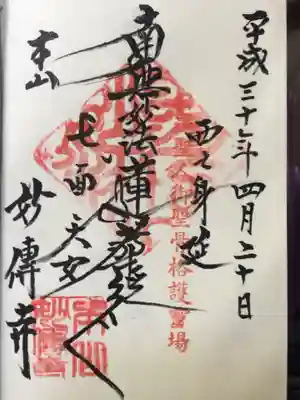 平成三十年四月二十日
西之身延
聖人御聖骨格護霊場
南無妙法蓮華経
七面天女
本山
妙傳寺